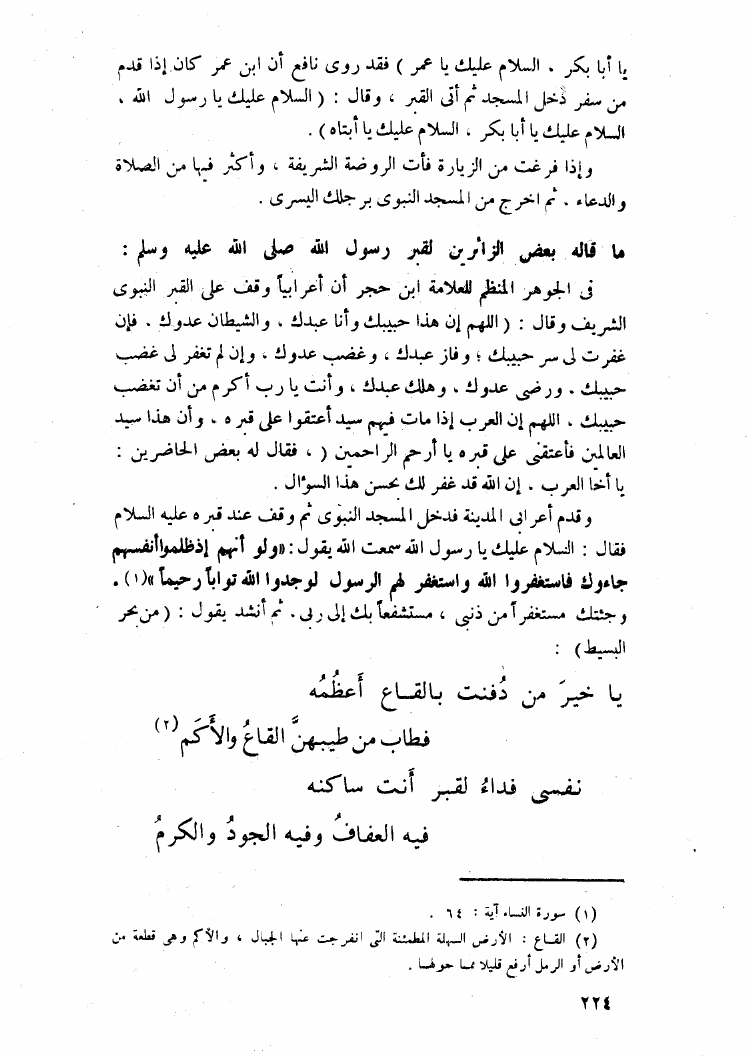 يا أبا بكر . السلام عليك يا عمر ) فقد روى نافع أن ابن عمر كان إذا قدم
من سفر دخل المسجد ثم أتى القبر ، وقال : ( السلام عليك يا رسول الله .
السلام عليك يا أبا بكر ، السلام عليك يا أبتاه ) .
وإذا فرغت من الزيارة فأت الروضة الشريفة ، وأكثر فيها من الصلاة
والدعاء . ثم اخرج من المسجد النبوى برجلك اليسرى .
ما قاله بعض الزائرين لقبر رسول الله صلى الله عليه وسلم :
فى الجوهر المنظم للعلامة ابن حجر أن أعرابياً وقف على القبر النبوى
الشريف وقال : ( اللهم إن هذا حبيبك وأنا عبدك ، والشيطان عدوك . فإن
غفرت لى سر حبيبك ؛ وفاز عبدك ، وغضب عدوك ، وإن لم تغفر لى غضب
حبيبك . ورضى عدوك ، وهلك عبدك ، وأنت يا رب أكرم من أن تغضب
حبيبك . اللهم إن العرب إذا مات فيهم سيد أعتقوا على قبره . وأن هذا سيد
العالمين فأعتقنى على قبره يا أرحم الراحمين ( ، فقال له بعض الحاضرين :
يا أخا العرب . إن الله قد غفر لك بحسن هذا السؤال .
وقدم أعرابى المدينة فدخل المسجد النبوى ثم وقف عند قبره عليه السلام
فقال : السلام عليك يا رسول الله سمعت الله يقول : «ولو أنهم إذ ظلموا أنفسهم
جاءوك فاستغفروا الله واستغفر لهم الرسول لوجدوا الله تواباً رحيماً »(١) .
وجئتك مستغفراً من ذنبى ، مستشفعاً بك إلى ربى . ثم أنشد يقول : ( من بحر
البسيط ) :
يا خيرَ من دُفنت بالقـاع أَعظُمُه
فطاب من طيبهنَّ القاعُ والأَكَم (٢)
نفسى فداءُ لقبر أَنت ساكنه
فيه العفافُ وفيه الجودُ والكرمُ
(١) سورة النساء آية : ٦٤ .
(٢) القـاع : الأرض السهلة المطمئنة التى انفرجت عنها الجبال ، والأكم وهى قطعة من
الأرض أو الرمل أرفع قليلا ممـا حولهـا .
٢٢٤